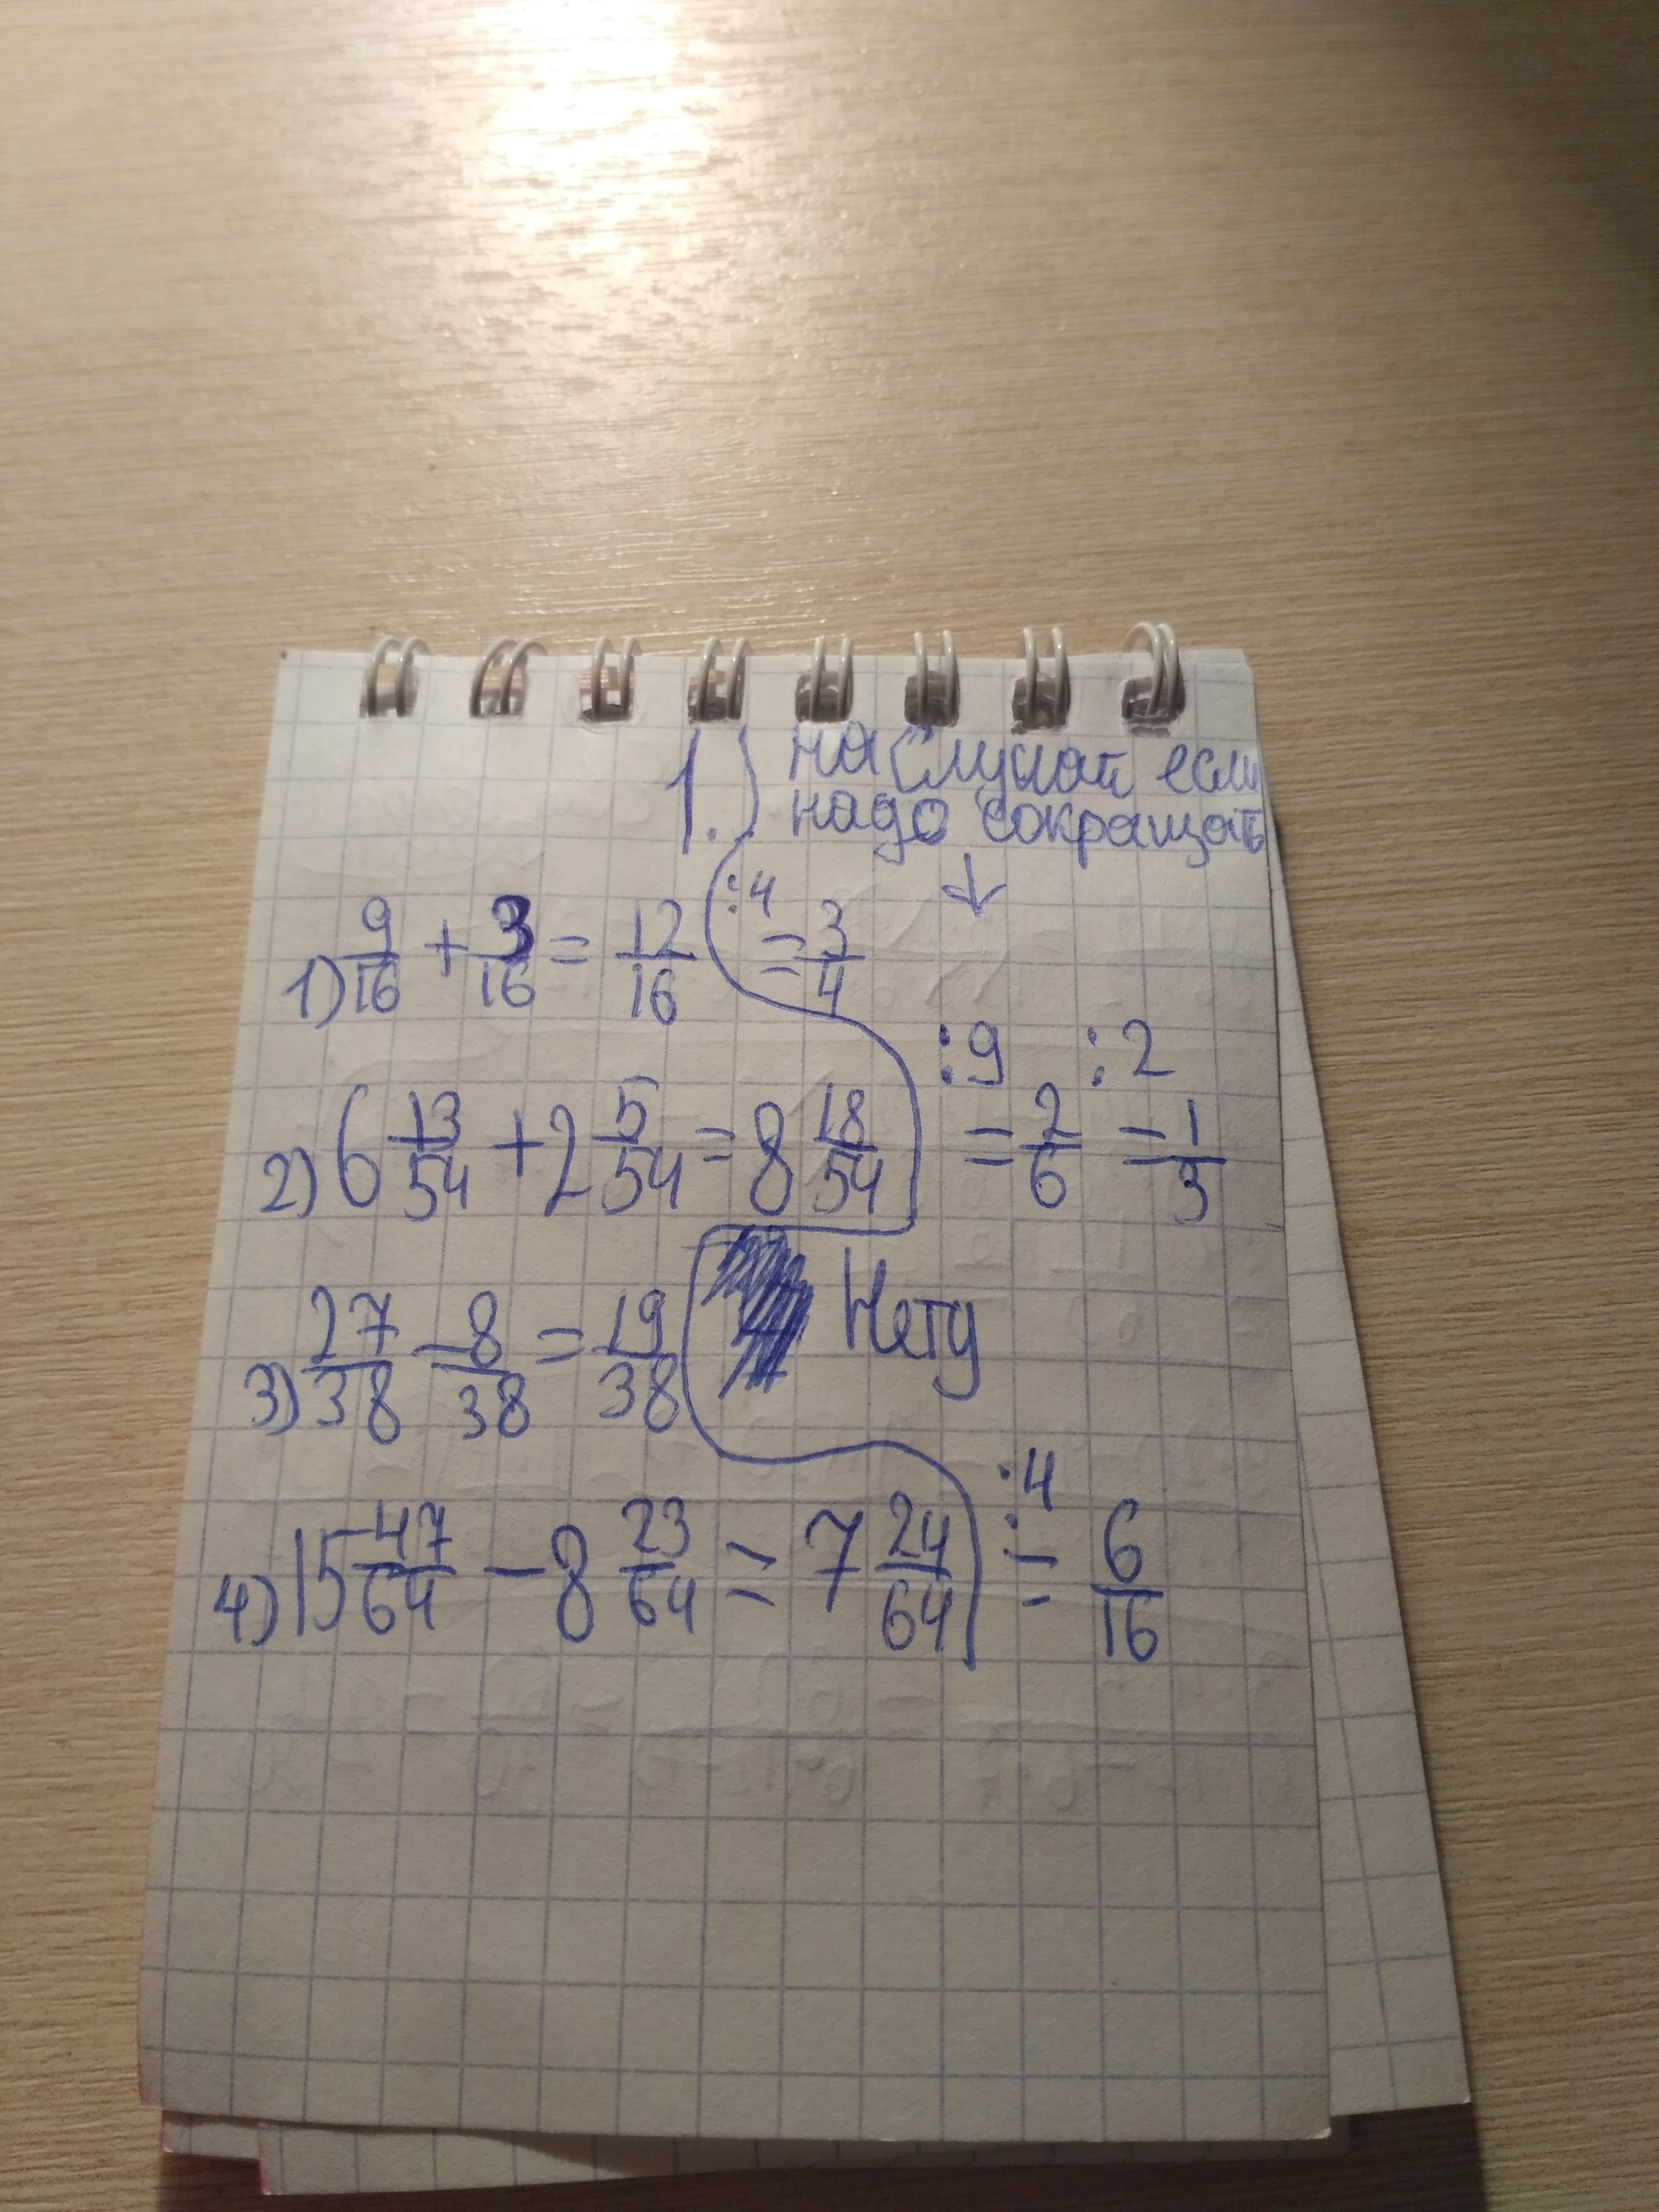 1.) на случай если
надо сокращать
↓
1) 9/16 + 3/16 = 12/16 :4 = 3/4
2) 6 13/54 + 2 5/54 = 8 18/54 :9 = 2/6 :2 = 1/3
3) 27/38 - 8/38 = 19/38 Нету
4) 15 47/64 - 8 23/64 = 7 24/64 :4 = 6/16